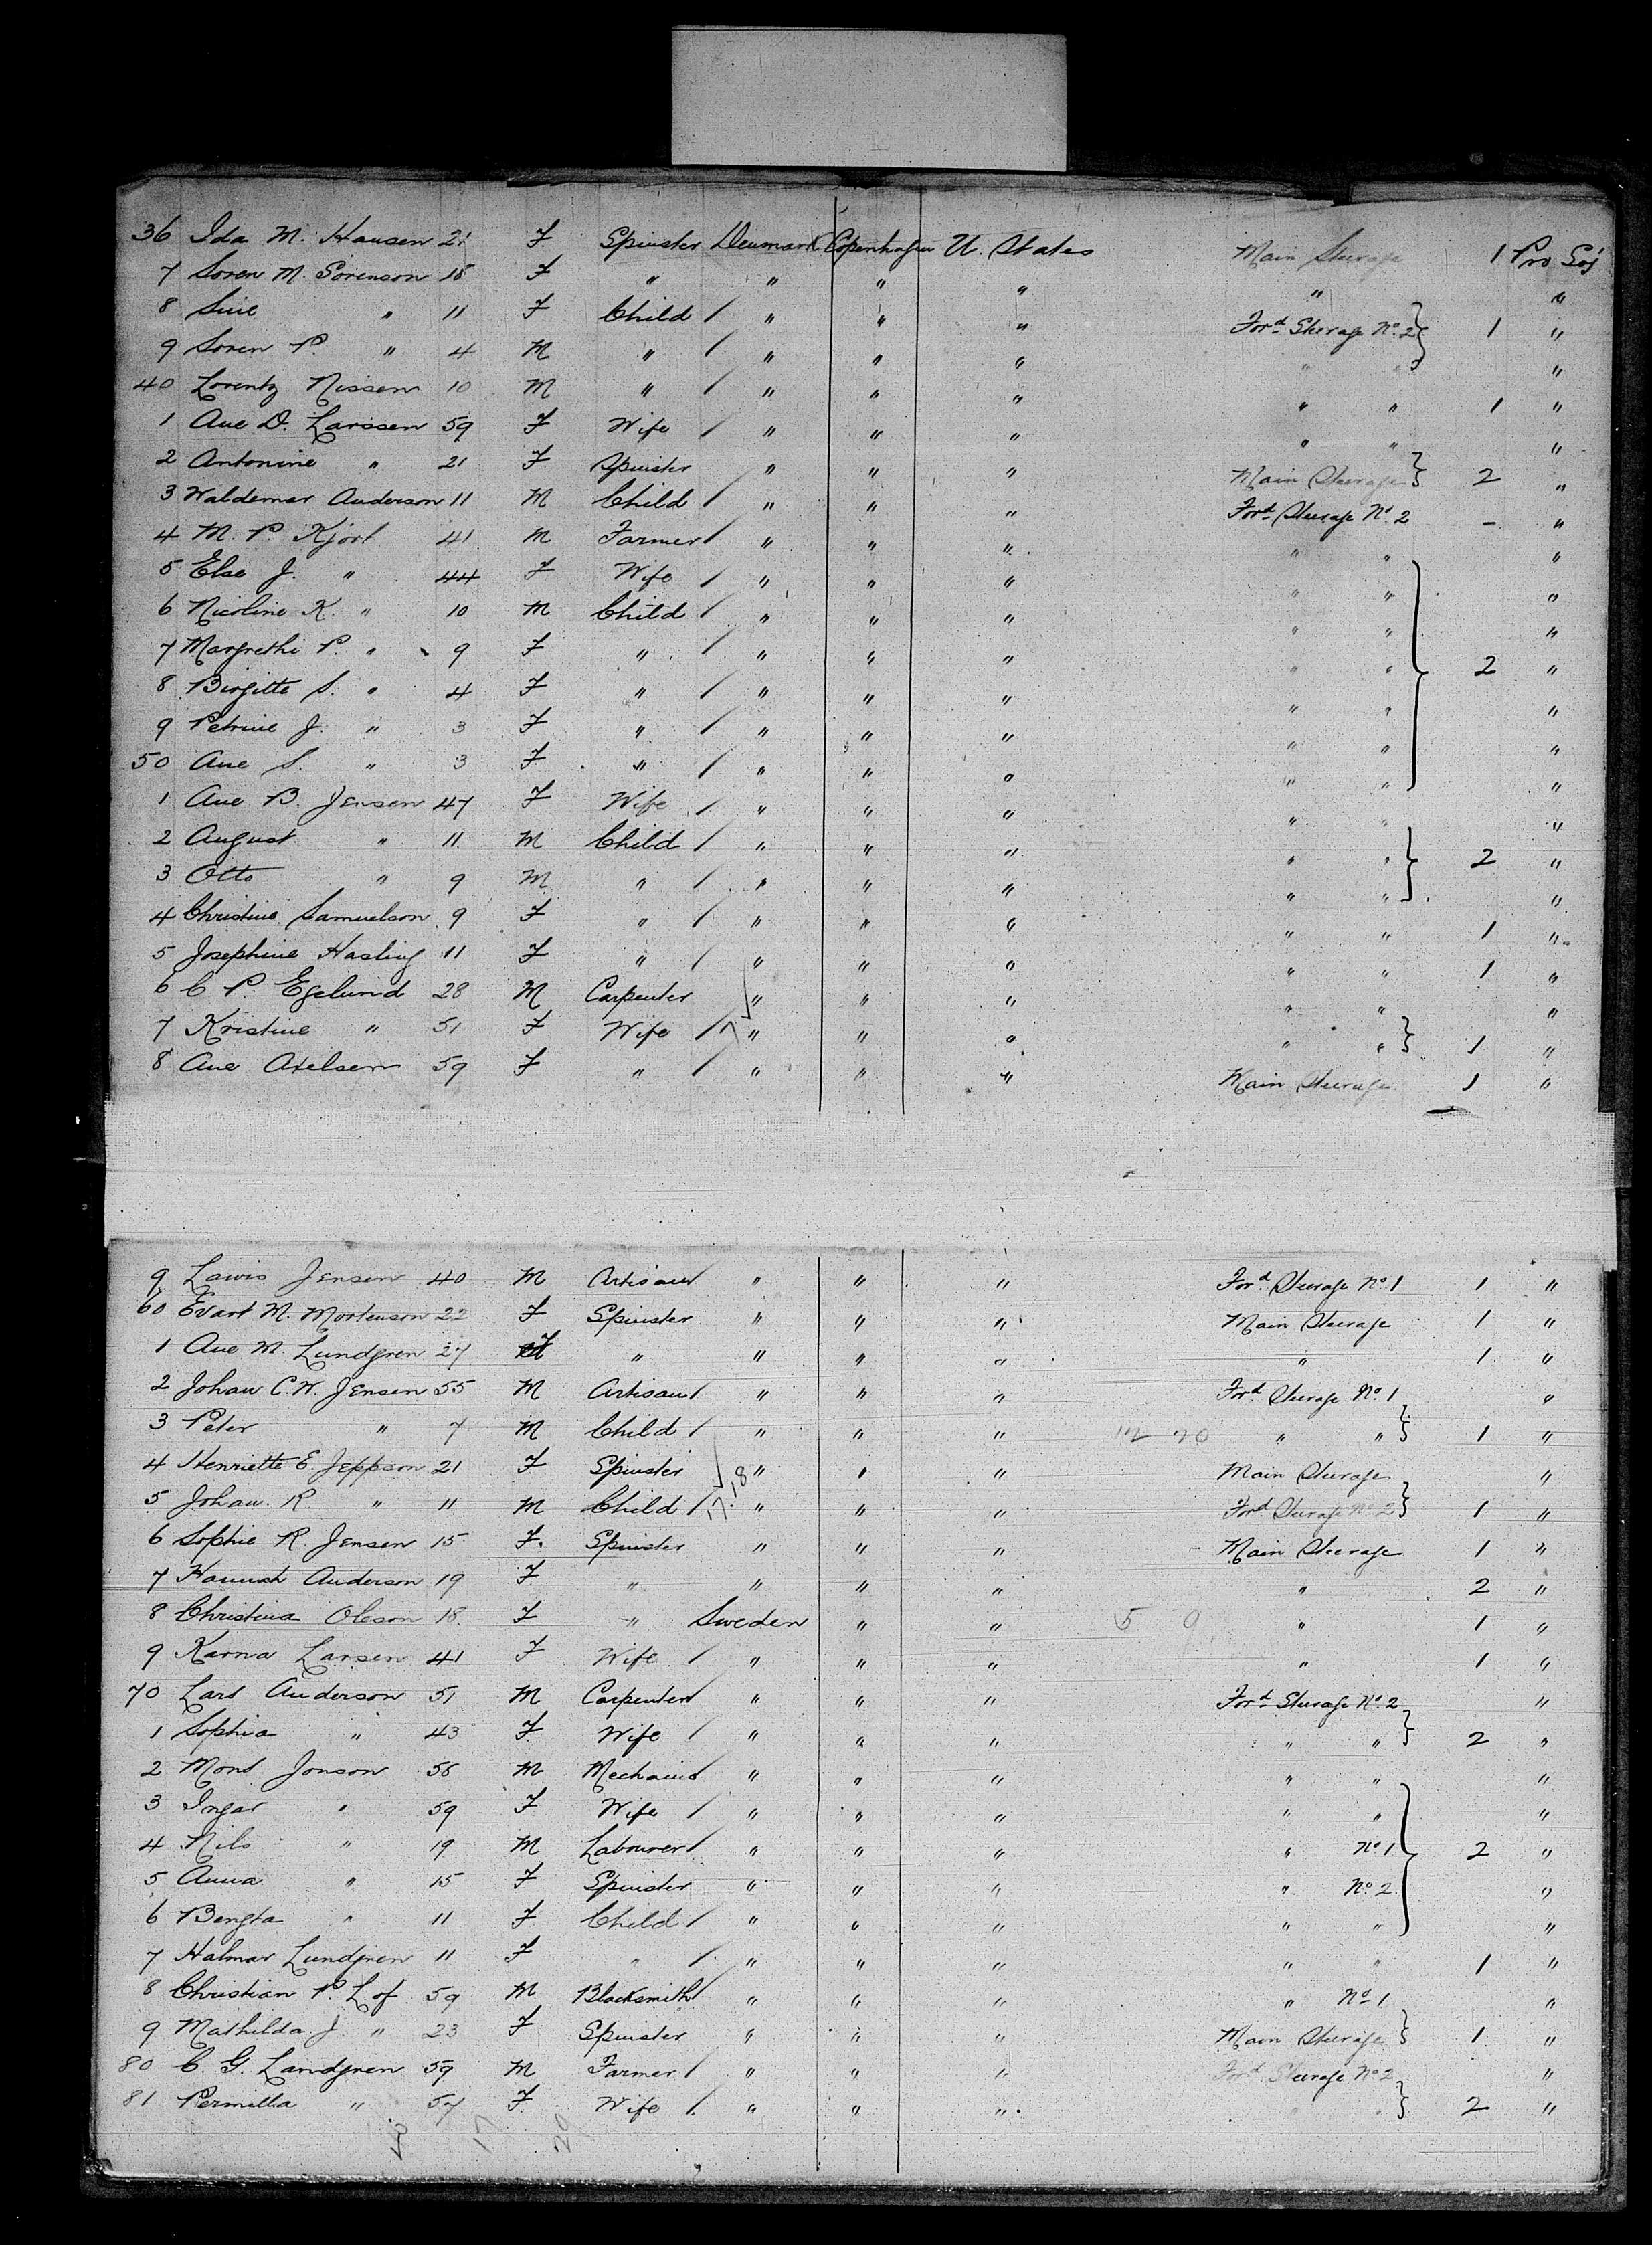 36 Ida M. Hansen 21 F Spinster Denmark Copenhagen U. States Main Steerage 1 Pro Soj
7 Soren M. Sorenson 15 F " " " " " "
8 Sine " 11 F Child / " " " For<sup>d</sup> Steerage No. 2 } 1 "
9 Soren P. " 4 M " / " " " " " "
40 Lorentz Nissen 10 M " / " " " " " 1 "
1 Ane D. Larssen 59 F Wife / " " " " " "
2 Antonine " 21 F Spinster " " " Main Steerage } 2 "
3 Waldemar Anderson 11 M Child / " " " For<sup>d</sup> Steerage No. 2 - "
4 M. P. Kjort 41 M Farmer / " " " " " "
5 Else J. " 44 F Wife / " " " " " "
6 Nicoline K. " 10 M Child / " " " " " "
7 Margrethe P. " 9 F " / " " " " " 2 "
8 Birgitte S. " 4 F " / " " " " " "
9 Petrine J. " 3 F " / " " " " " "
50 Ane S. " 3 F " / " " " " " "
1 Ane B. Jensen 47 F Wife / " " " " " "
2 August " 11 M Child / " " " " " } 2 "
3 Otto " 9 M " / " " " " " "
4 Christine Samuelson 9 F " / " " " " " 1 "
5 Josephine Hasling 11 F " / " " " " " 1 "
6 C P. Egelund 28 M Carpenter " " " " " "
7 Kristine " 51 F Wife / 7 " " " " " } 1 "
8 Ane Axelsen 59 F " / " " " Main Steerage 1 "
9 Lawis Jensen 40 M Artisan / " " " For<sup>d</sup> Steerage No. 1 1 "
60 Evart M. Mortenson 22 F Spinster " " " Main Steerage 1 "
1 Ane M. Lundgren 27 F " " " " " 1 "
2 Johan C. W. Jensen 55 M Artisan / " " " For<sup>d</sup> Steerage No. 1 "
3 Peter " 7 M Child / " " " " " } 1 "
4 Henriette E. Jeppson 21 F Spinster " " " Main Steerage "
5 Johan R. " 11 M Child / 17.18 " " " For<sup>d</sup> Steerage No. 2 } 1 "
6 Sophie R. Jensen 15 F. Spinster " " " Main Steerage 1 "
7 Hannah Anderson 19 F " " " " " 2 "
8 Christina Oleson 18 F " Sweden " " 5 9 " 1 "
9 Karna Larsen 41 F Wife / " " " " 1 "
70 Lars Anderson 51 M Carpenter / " " " For<sup>d</sup> Steerage No. 2 "
1 Sophia " 43 F Wife / " " " " " } 2 "
2 Mons Jonson 56 M Mechanic " " " " " "
3 Ingar " 59 F Wife / " " " " " "
4 Nils " 19 M Labourer / " " " " No. 1 2 "
5 Anna " 15 F Spinster " " " " No. 2 "
6 Bengta " 11 F Child / " " " " " "
7 Halmar Lundgren 11 F " / " " " " " 1 "
8 Christian P. Lof 59 M Blacksmith / " " " " No. 1 "
9 Mathilda J. " 23 F Spinster " " " Main Steerage } 1 "
80 C. G. Landgren 59 M Farmer / " " " For<sup>d</sup> Steerage No. 2 "
81 Pernilla " 57 F Wife / " " " " " } 2 "
17 20